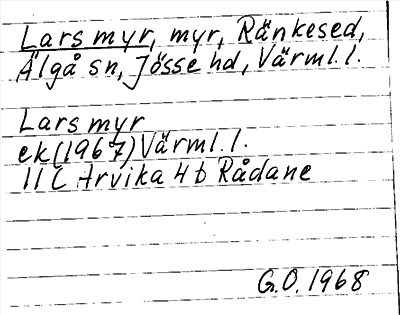 Lars myr, myr, Ränkesed,
Älgå sn, Jösse hd, Värml. l.
Lars myr
ek (1967) Värml. l.
11 C Arvika 4 b Rådane
G.O. 1968